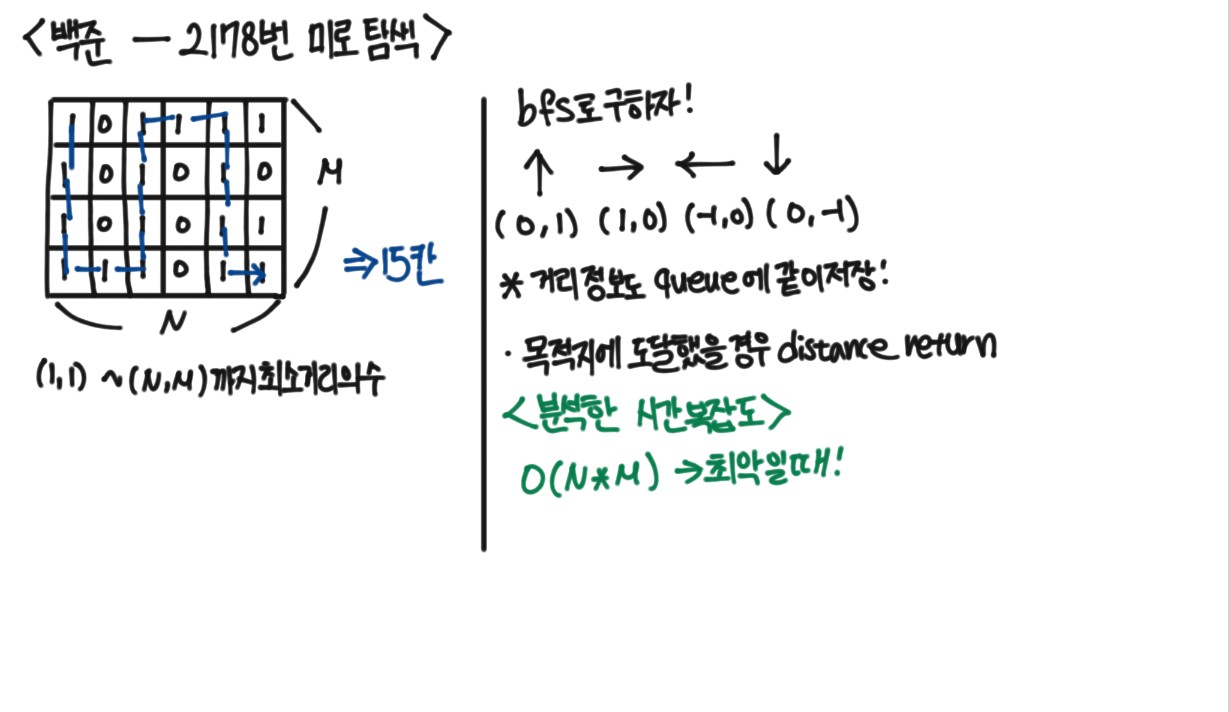 <백준 - 2178번 미로탐색>
1 0 1 1 1 1
1 0 1 0 1 0
1 0 1 0 1 1
1 1 1 0 1 1
M
N
⇒15칸
(1,1) ~(N,M)까지최소거리의수
bfs로구하자!
↑ → ← ↓
(0,1) (1,0) (-1,0) (0,-1)
* 거리정보도 queue에 같이저장!
· 목적지에 도달했을경우 distance return
<분석한 시간복잡도>
O(N*M) →최악일때!